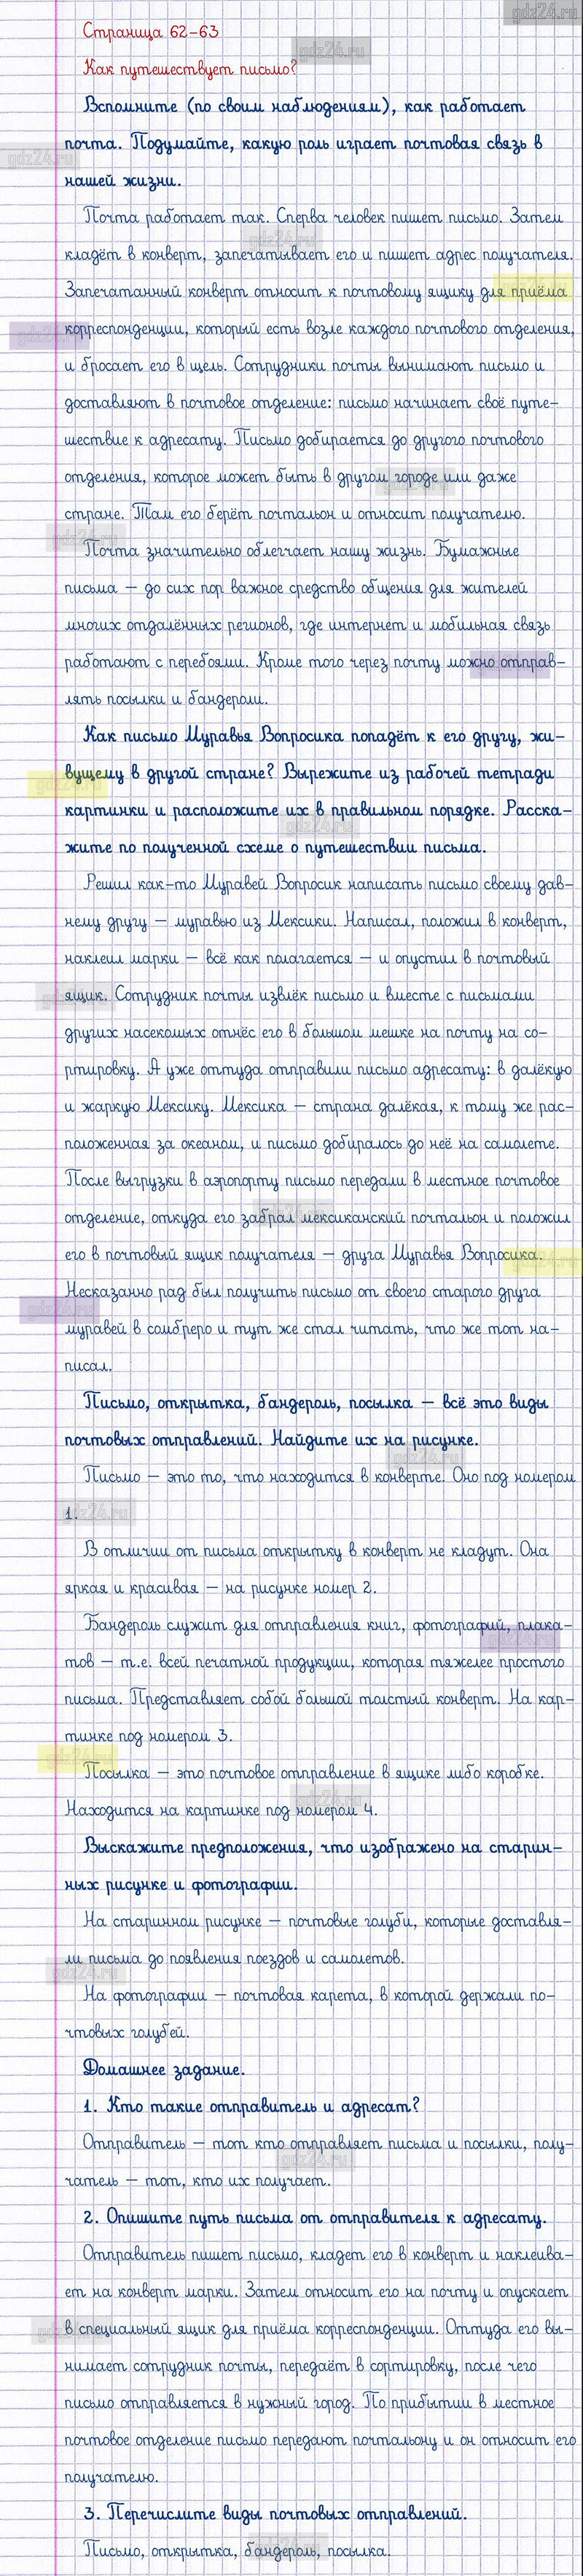 gdz24.ru
Страница 62-63
gdz24.ru
Как путешествует письмо?
Вспомните (по своим наблюдениям), как работает
почта. Подумайте, какую роль играет почтовая связь в
gdz24.ru
нашей жизни.
Почта работает так. Сперва человек пишет письмо. Затем
gdz24.ru
кладёт в конверт, запечатывает его и пишет адрес получателя.
Запечатанный конверт относит к почтовому ящику для приёма
gdz24.ru
корреспонденции, который есть возле каждого почтового отделения,
и бросает его в щель. Сотрудники почты вынимают письмо и
доставляют в почтовое отделение: письмо начинает своё путе-
шествие к адресату. Письмо добирается до другого почтового
отделения, которое может быть в другом городе или даже
стране. Там его берёт почтальон и относит получателю.
gdz24.ru
Почта значительно облегчает нашу жизнь. Бумажные
письма – до сих пор важное средство общения для жителей
многих отдалённых регионов, где интернет и мобильная связь
работают с перебоями. Кроме того через почту можно отправ-
лять посылки и бандероли.
Как письмо Муравья Вопросика попадёт к его другу, жи-
вущему в другой стране? Вырежите из рабочей тетради
gdz24.ru
картинки и расположите их в правильном порядке. Расска-
gdz24.ru
жите по полученной схеме о путешествии письма.
Решил как-то Муравей Вопросик написать письмо своему дав-
нему другу – муравью из Мексики. Написал, положил в конверт,
наклеил марки – всё как полагается – и опустил в почтовый
ящик. Сотрудник почты извлёк письмо и вместе с письмами
gdz24.ru
других насекомых отнёс его в большом мешке на почту на со-
ртировку. А уже оттуда отправили письмо адресату: в далёкую
и жаркую Мексику. Мексика – страна далёкая, к тому же рас-
положенная за океаном, и письмо добиралось до неё на самолете.
После выгрузки в аэропорту письмо передали в местное почтовое
отделение, откуда его забрал мексиканский почтальон и положил
gdz24.ru
его в почтовый ящик получателя – друга Муравья Вопросика.
gdz24.ru
Несказанно рад был получить письмо от своего старого друга
gdz24.ru
муравей в сомбреро и тут же стал читать, что же тот на-
писал.
Письмо, открытка, бандероль, посылка – всё это виды
почтовых отправлений. Найдите их на рисунке.
gdz24.ru
Письмо – это то, что находится в конверте. Оно под номером
1.
gdz24.ru
В отличии от письма открытку в конверт не кладут. Она
яркая и красивая – на рисунке номер 2.
Бандероль служит для отправления книг, фотографий, плака-
gdz24.ru
тов – т.е. всей печатной продукции, которая тяжелее простого
письма. Представляет собой большой толстый конверт. На кар-
тинке под номером 3.
gdz24.ru
Посылка – это почтовое отправление в ящике либо коробке.
Находится на картинке под номером 4.
gdz24.ru
Выскажите предположения, что изображено на старин-
ных рисунке и фотографии.
На старинном рисунке – почтовые голуби, которые доставля-
ли письма до появления поездов и самолетов.
gdz24.ru
На фотографии – почтовая карета, в которой держали по-
чтовых голубей.
Домашнее задание.
1. Кто такие отправитель и адресат?
Отправитель – тот кто отправляет письма и посылки, полу-
gdz24.ru
чатель – тот, кто их получает.
2. Опишите путь письма от отправителя к адресату.
Отправитель пишет письмо, кладет его в конверт и наклеива-
ет на конверт марки. Затем относит его на почту и опускает
в специальный ящик для приёма корреспонденции. Оттуда его вы-
gdz24.ru
нимает сотрудник почты, передаёт в сортировку, после чего
письмо отправляется в нужный город. По прибытии в местное
почтовое отделение письмо передают почтальону и он относит его
получателю.
3. Перечислите виды почтовых отправлений.
Письмо, открытка, бандероль, посылка.
gdz24.ru